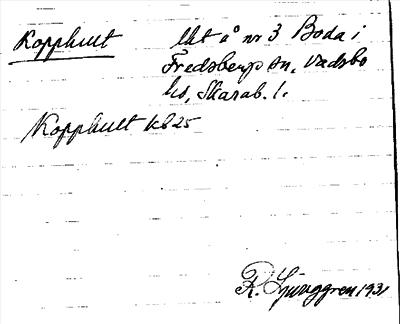 Kopphult lht å nr 3 Boda i
Fredsbergs sn, Vadsbo
hd, Skarab. l.
Kopphult kb 25
R. Ljunggren 1931